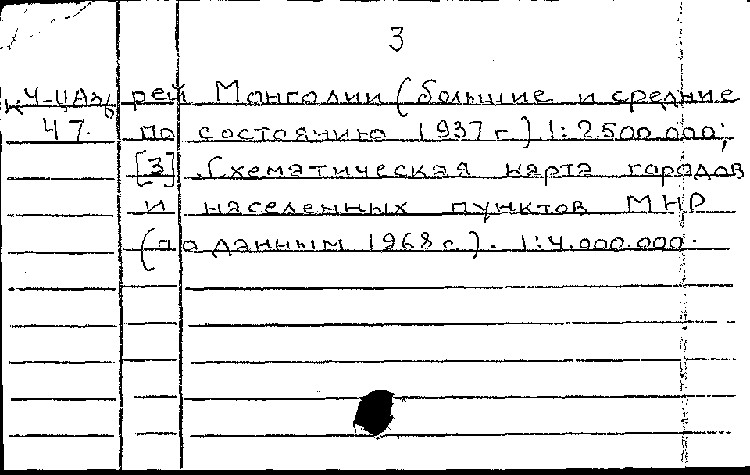 3
К4-ЦАз/6 рей Монголии (большие и средние
47. по состоянию 1937 г.) 1:2500.000;
[3]. Схематическая карта городов
и населенных пунктов МНР
(по данным 1968 г.). 1:4.000.000.